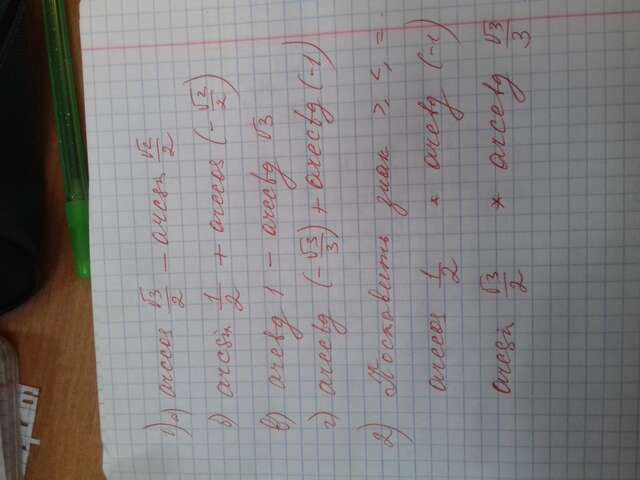 1) а) arccos √3/2 − arcsin √2/2
б) arcsin 1/2 + arccos (−√2/2)
в) arctg 1 − arcctg √3
г) arcctg (−√3/3) + arcctg (−1)
2) Поставить знак >, <, =.
arccos 1/2 * arctg (−1)
arcsin √3/2 * arcctg √3/3